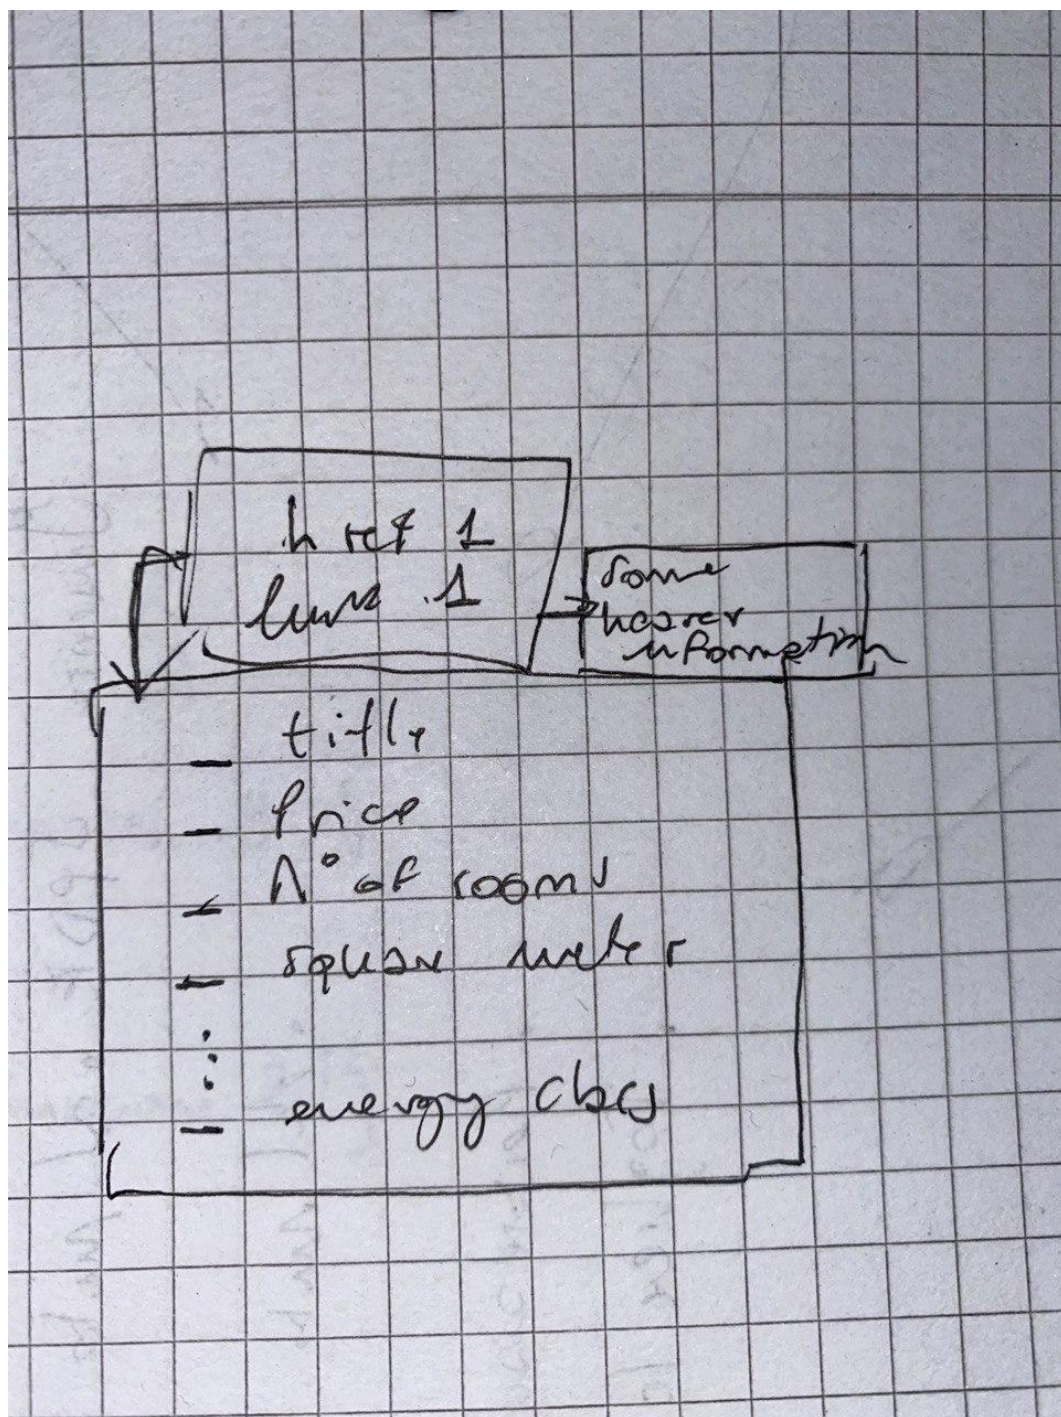 href 1
link 1
Some
header
information
— title
— Price
— N° of rooms
— square meter
⋮
— energy class